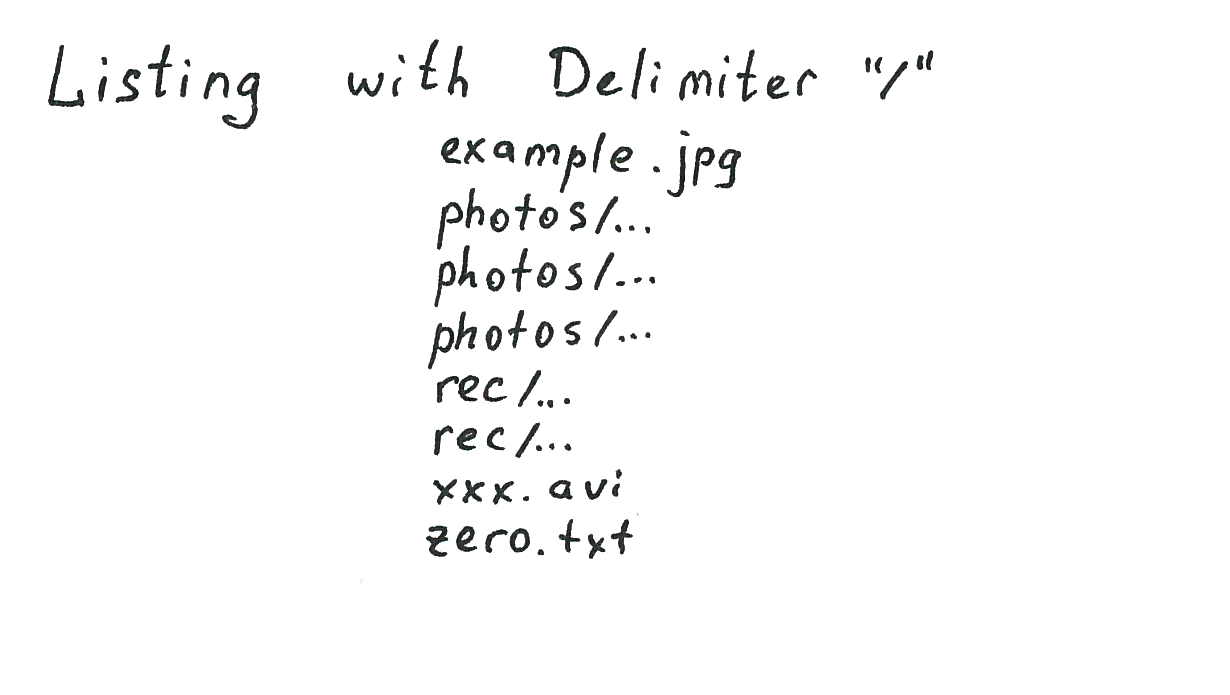 Listing with Delimiter "/"
example.jpg
photos/...
photos/...
photos/...
rec/...
rec/...
xxx.avi
zero.txt